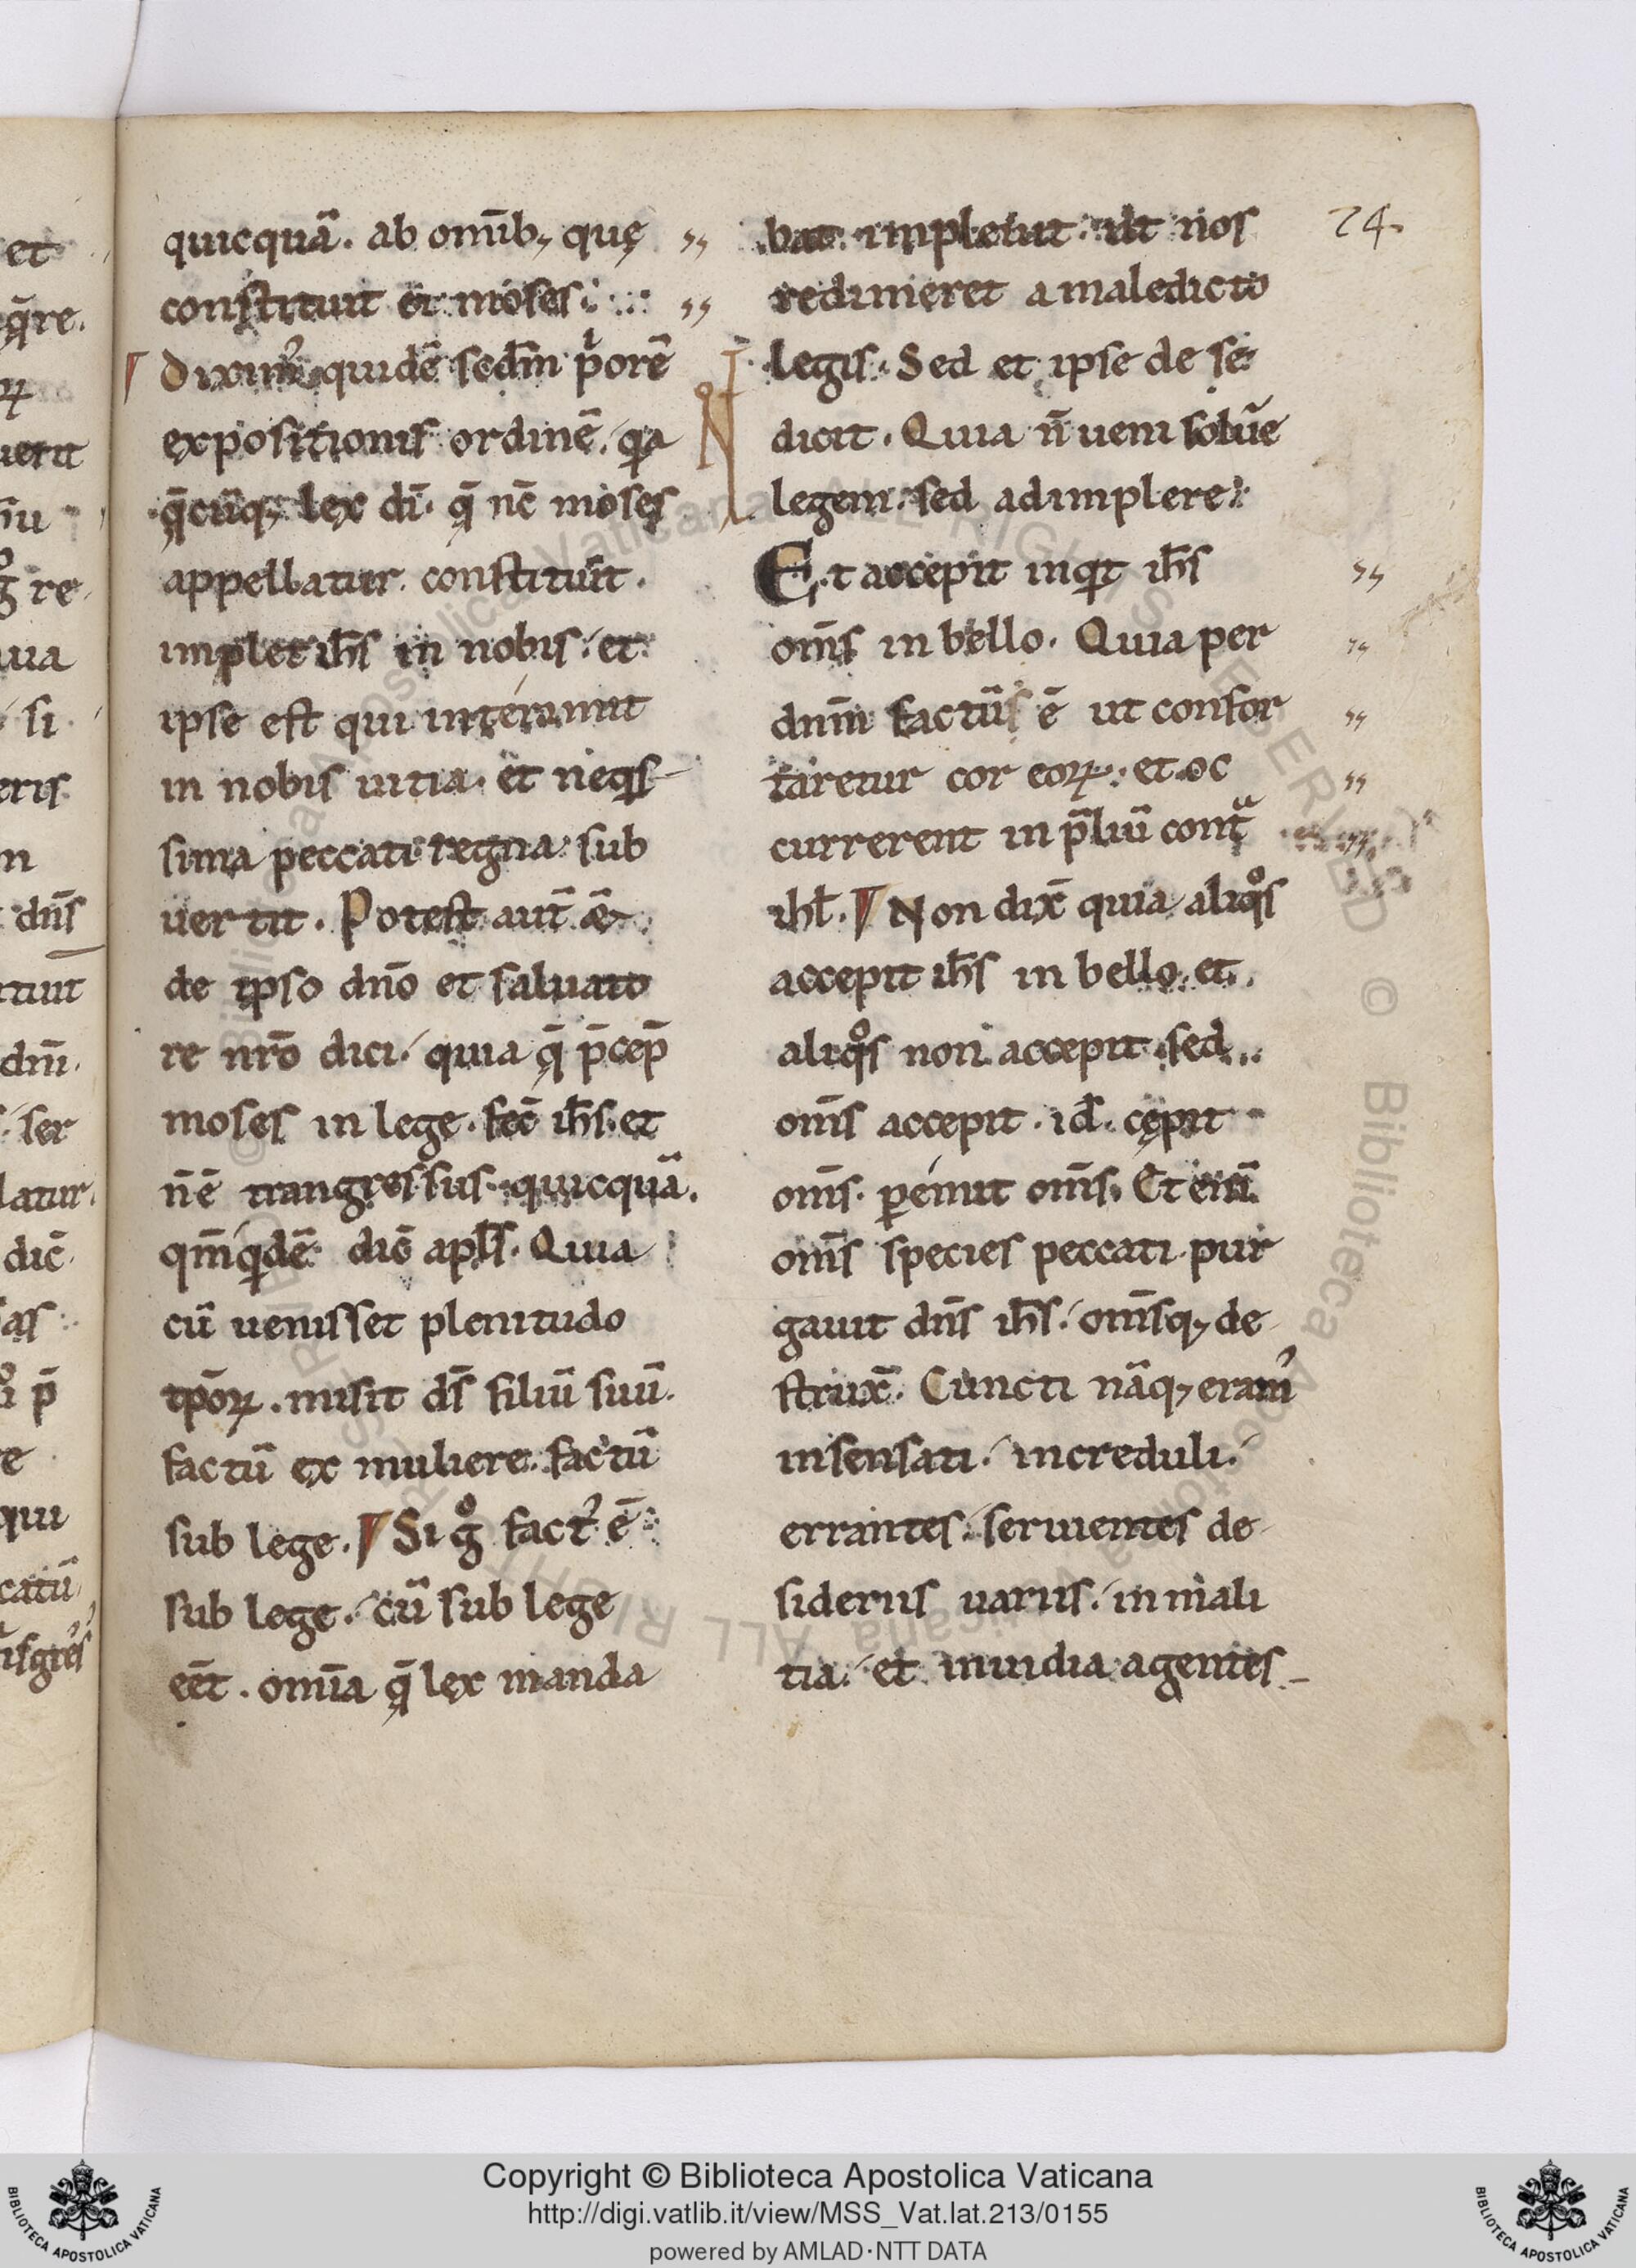 quicquā. ab om̄ib; quę
constituit ei moses.
Dixim᾽ quidē scdm̄ p̍orē
expositionis ordinē. qa
q̄cūq; lex dī. q̄ nc̄ moses
appellatur. constituit.
implet ih̄s in nobis. et
ipse est qui interimit
in nobis uitia. et neqs
sima peccati regna sub
uertit. Potest aut̄
de ipso dn̄o et saluato
re nr̄o dici. quia q̄ p̄cep̄
moses in lege. fec̄ ih̄s. et
n̄ ē trangressus quicquā.
qm̄ qdē dic̄ apl̄s. Quia
cū uenisset plenitudo
tp̄oꝝ. misit ds̄ filiū suū.
factū ex muliere. factū
sub lege. Si gͦ fact᾽ ē
sub lege. cū sub lege
eēt. om̄ia q̄ lex manda
bat impleuit. ut nos
redimeret a maledicto
legis. Sed et ipse de se
dicit. Quia n̄ ueni soluē
legem. sed adimplere.
Et accepit inqt ih̄s
om̄s in bello. Quia per
dnm̄ factū ē ut confor
taretur cor eoꝝ. et oc
currerent in p̄liū contͣ
ihl̄. Non dix̄ quia aliqͦs
accepit ih̄s in bello. et
aliqͦs non accepit. sed
om̄s accepit. id̄. cępit
om̄s. ꝑemit om̄s. Et eni̅
om̄s species peccati pur
gauit dn̄s ih̄s. om̄sq; de
strux̄. Cuncti nāq; eram᾽
insensati. increduli.
errantes. seruientes de
sideriis uariis. in mali
tia. et inuidia agentes
24
Copyright © Biblioteca Apostolica Vaticana
http://digi.vatlib.it/view/MSS_Vat.lat.213/0155
powered by AMLAD·NTT DATA
BIBLIOTECA APOSTOLICA VATICANA
BIBLIOTECA APOSTOLICA VATICANA